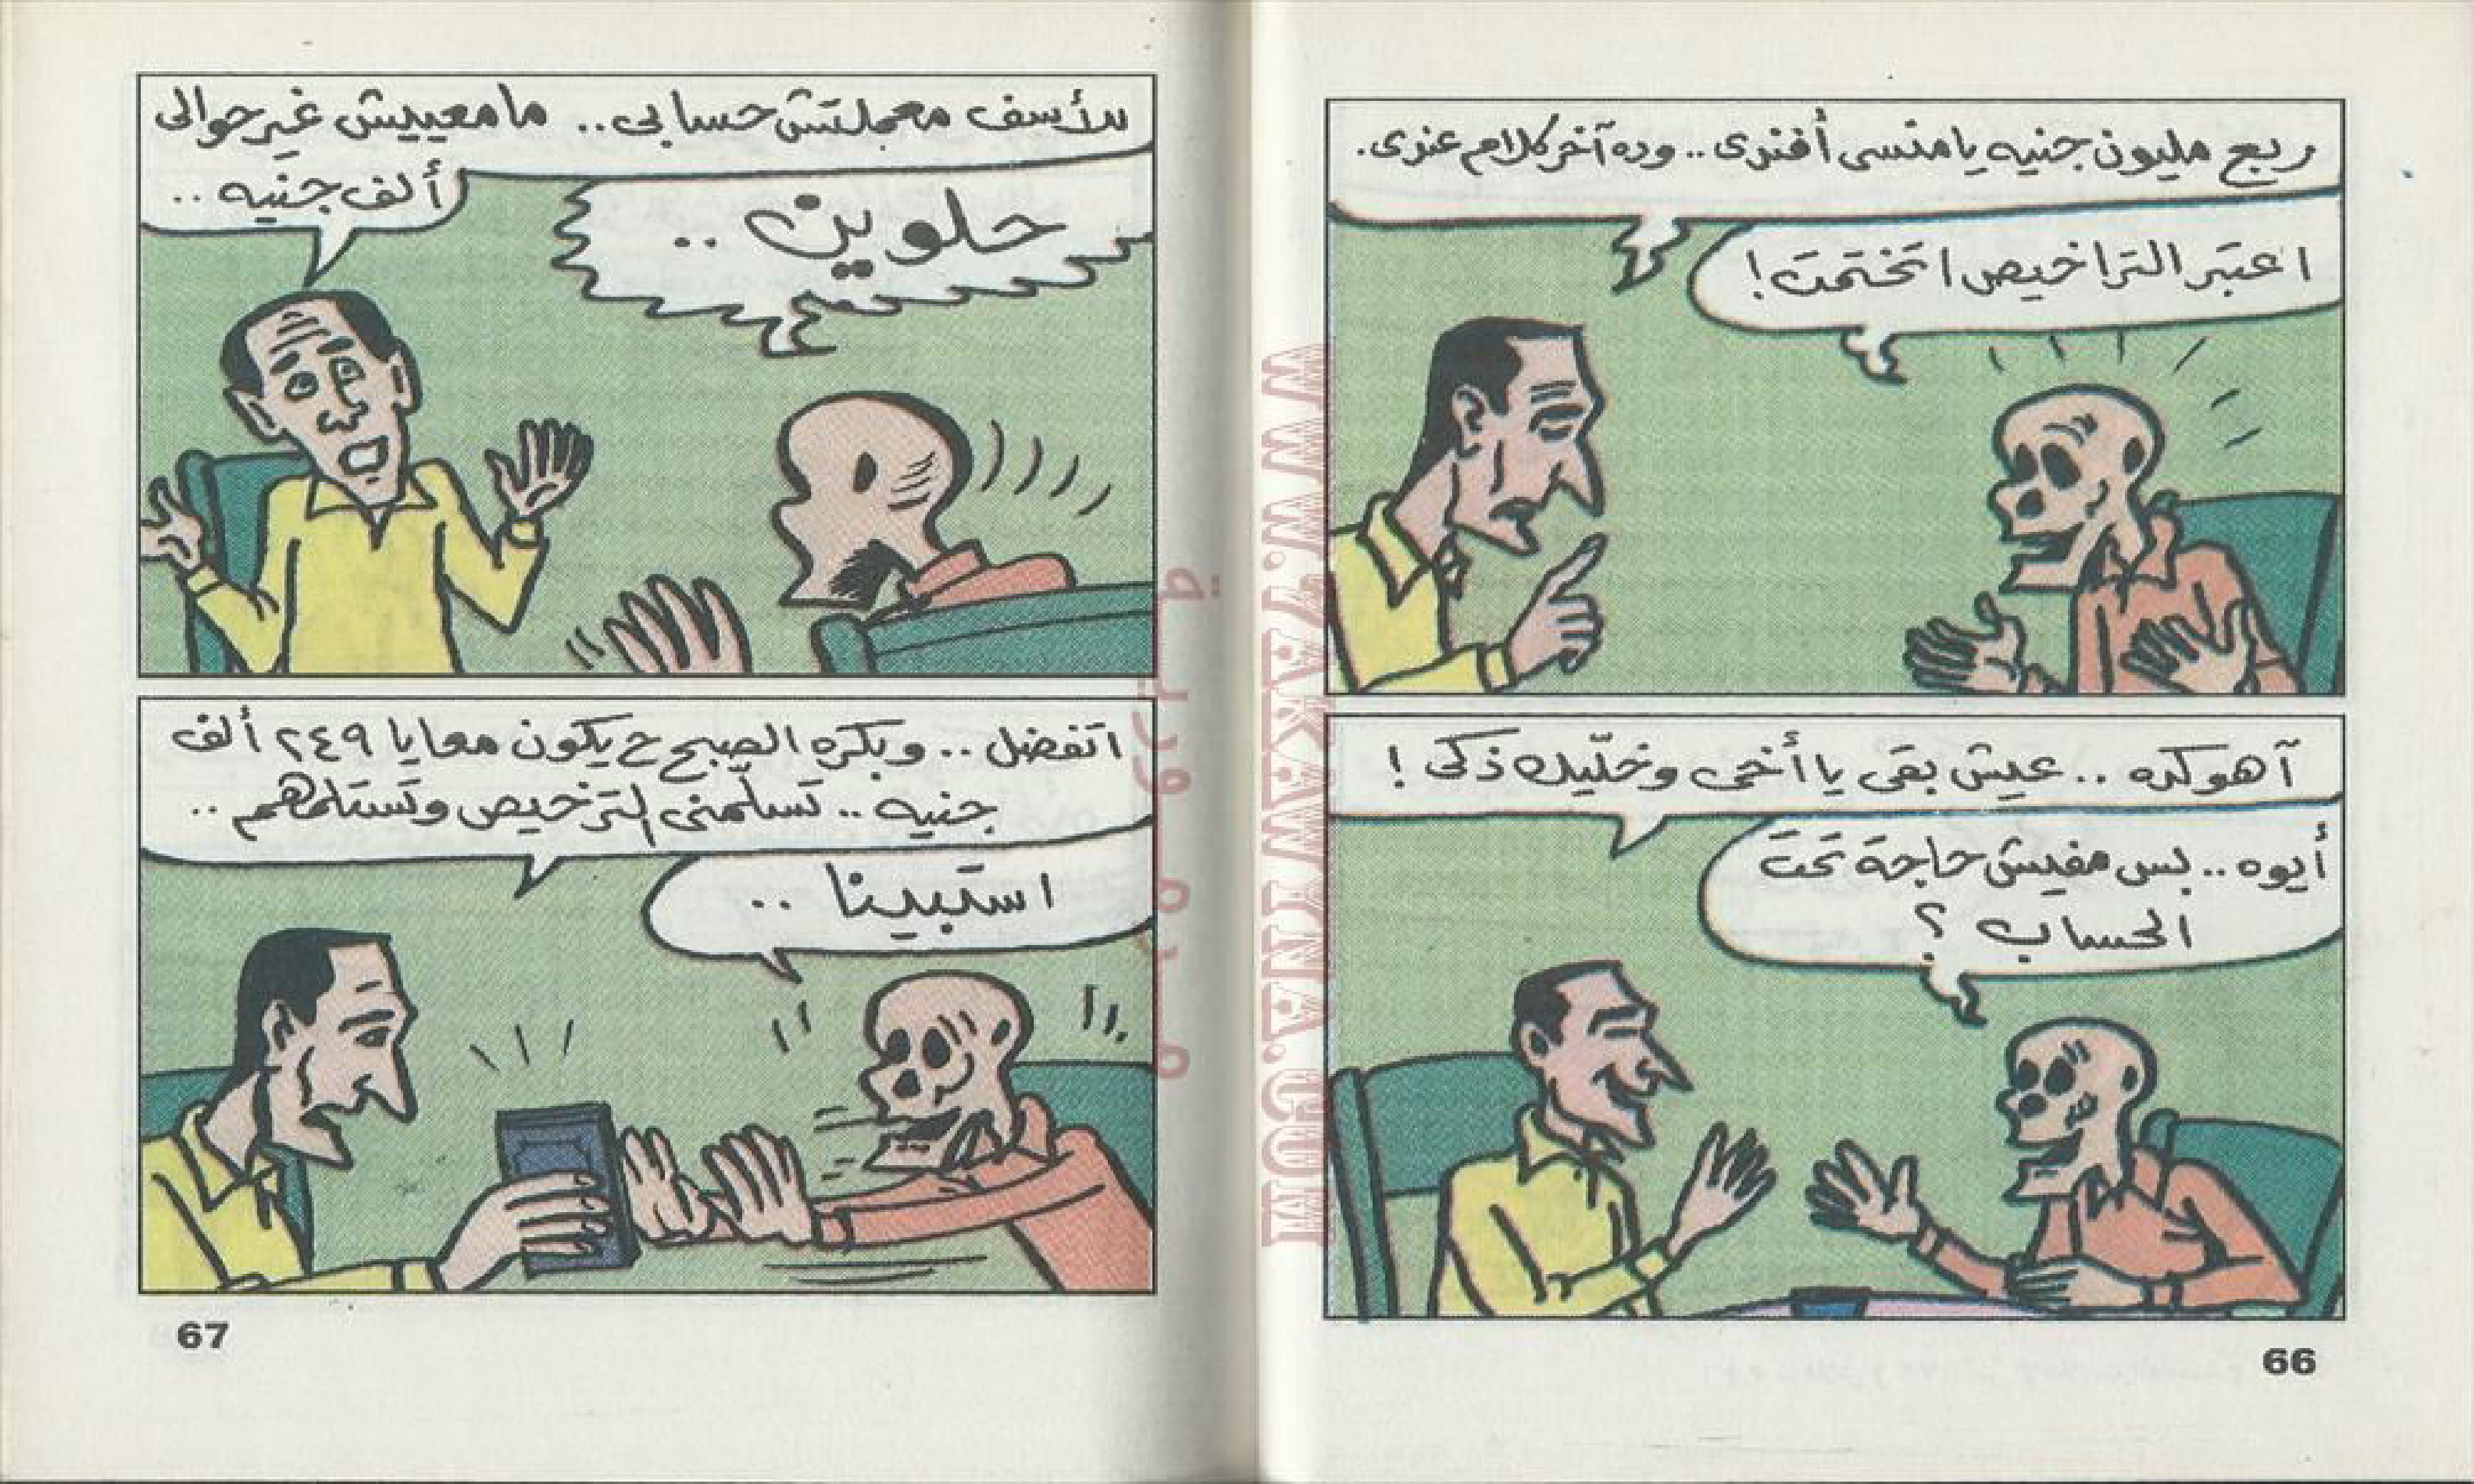 ربع مليون جنيه يا منسى أفندى .. وده آخر كلام عندى .
اعتبر التراخيص اتختمت !
آهو كده .. عيش بقى يا أخى وخلّيك ذكى !
أيوه .. بس مفيش حاجة تحت
الحساب ؟
66
للأسف معملتش حسابى .. ما معييش غير حوالى
ألف جنيه ..
حلوين ..
اتفضل .. وبكره الصبح ح يكون معايا ٢٤٩ ألف
جنيه .. تسلّمنى الترخيص وتستلمهم ..
استبينا ..
67